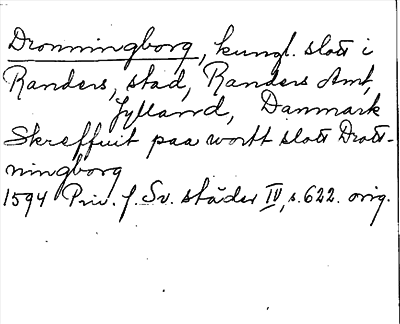 Dronningborg, kungl. slott i
Randers, stad, Randers Amt,
Jylland, Danmark
Skreffuit paa wortt slott Drott-
ningborg
1594 Priv. f. Sv. städer IV, s. 622. orig.